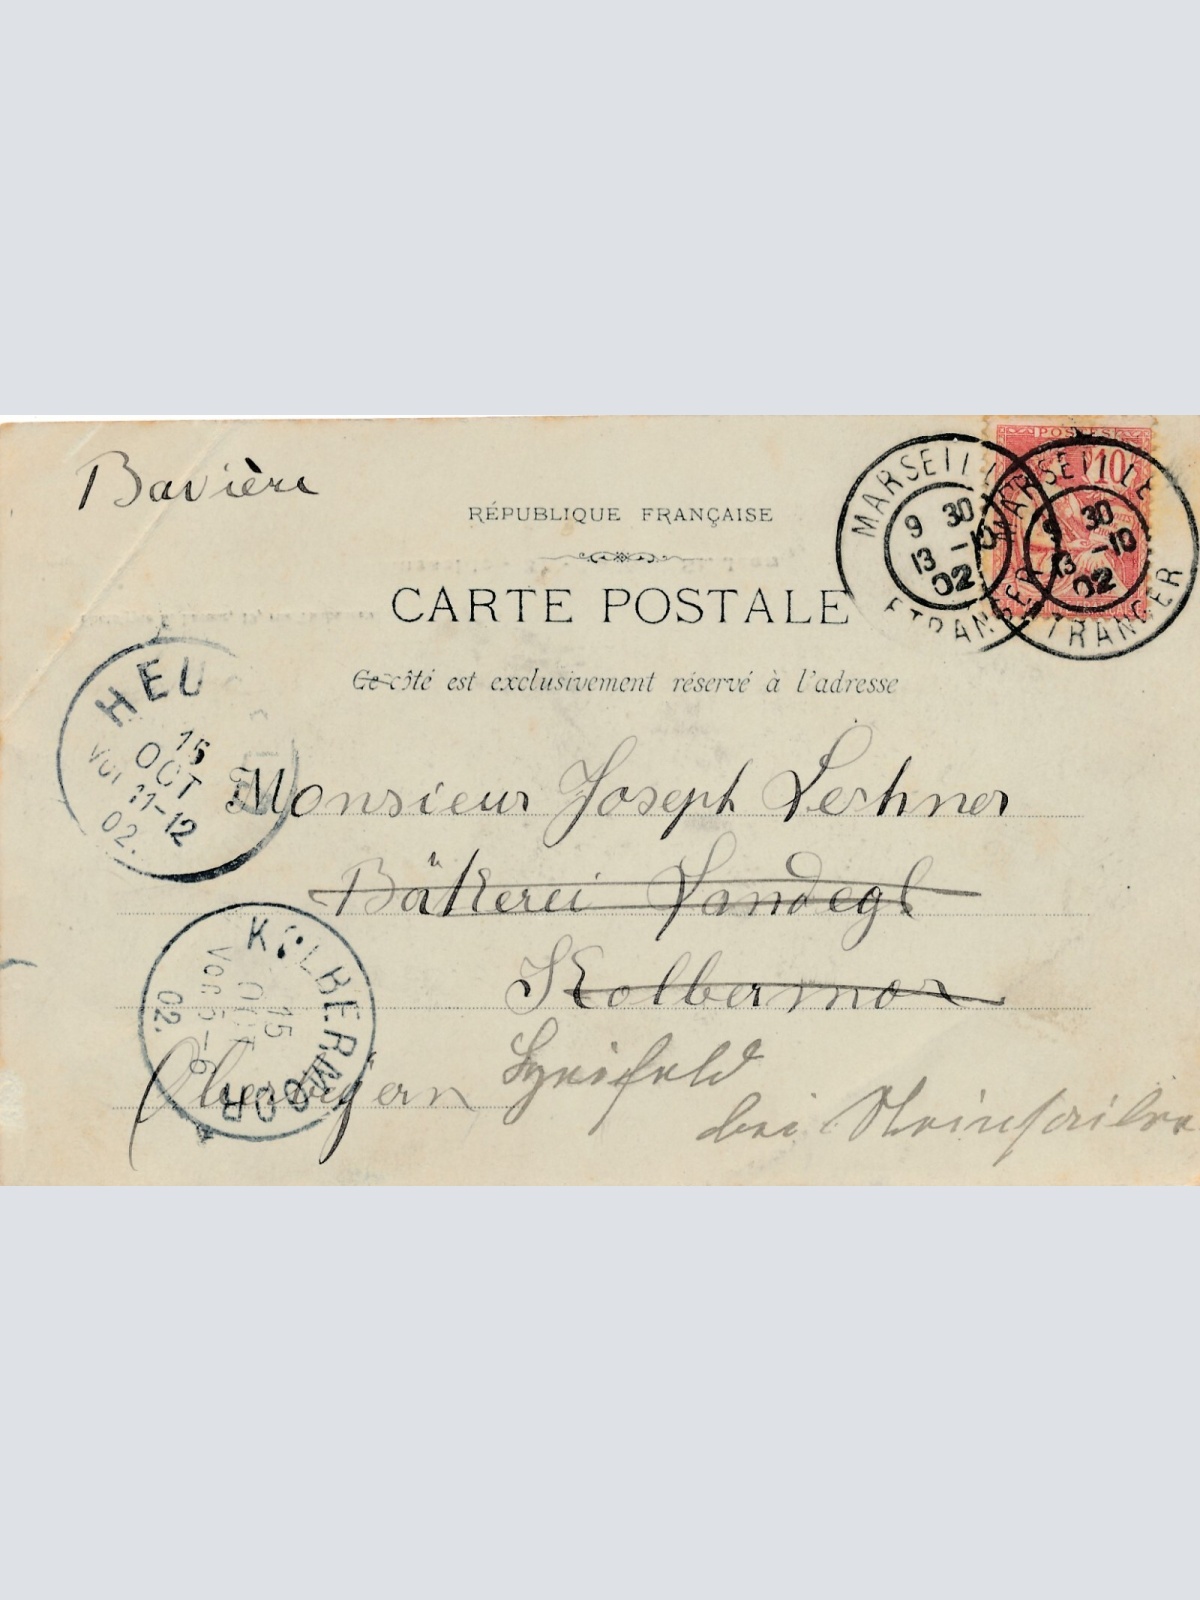 Bavière
RÉPUBLIQUE FRANÇAISE
CARTE POSTALE
Ce côté est exclusivement réservé à l'adresse
POSTES
10
MARSEILLE
9 30
13 -10
02
ETRANGER
MARSEILLE
9 30
13 -10
02
ETRANGER
HEU
15
OCT
Vor 11-12
02.
Monsieur Joseph Lechner
Bäkerei Landegl
Kolbermor
KOLBERMOOR
15
OCT
Vor. 5-6
02.
Oberbayern
bei